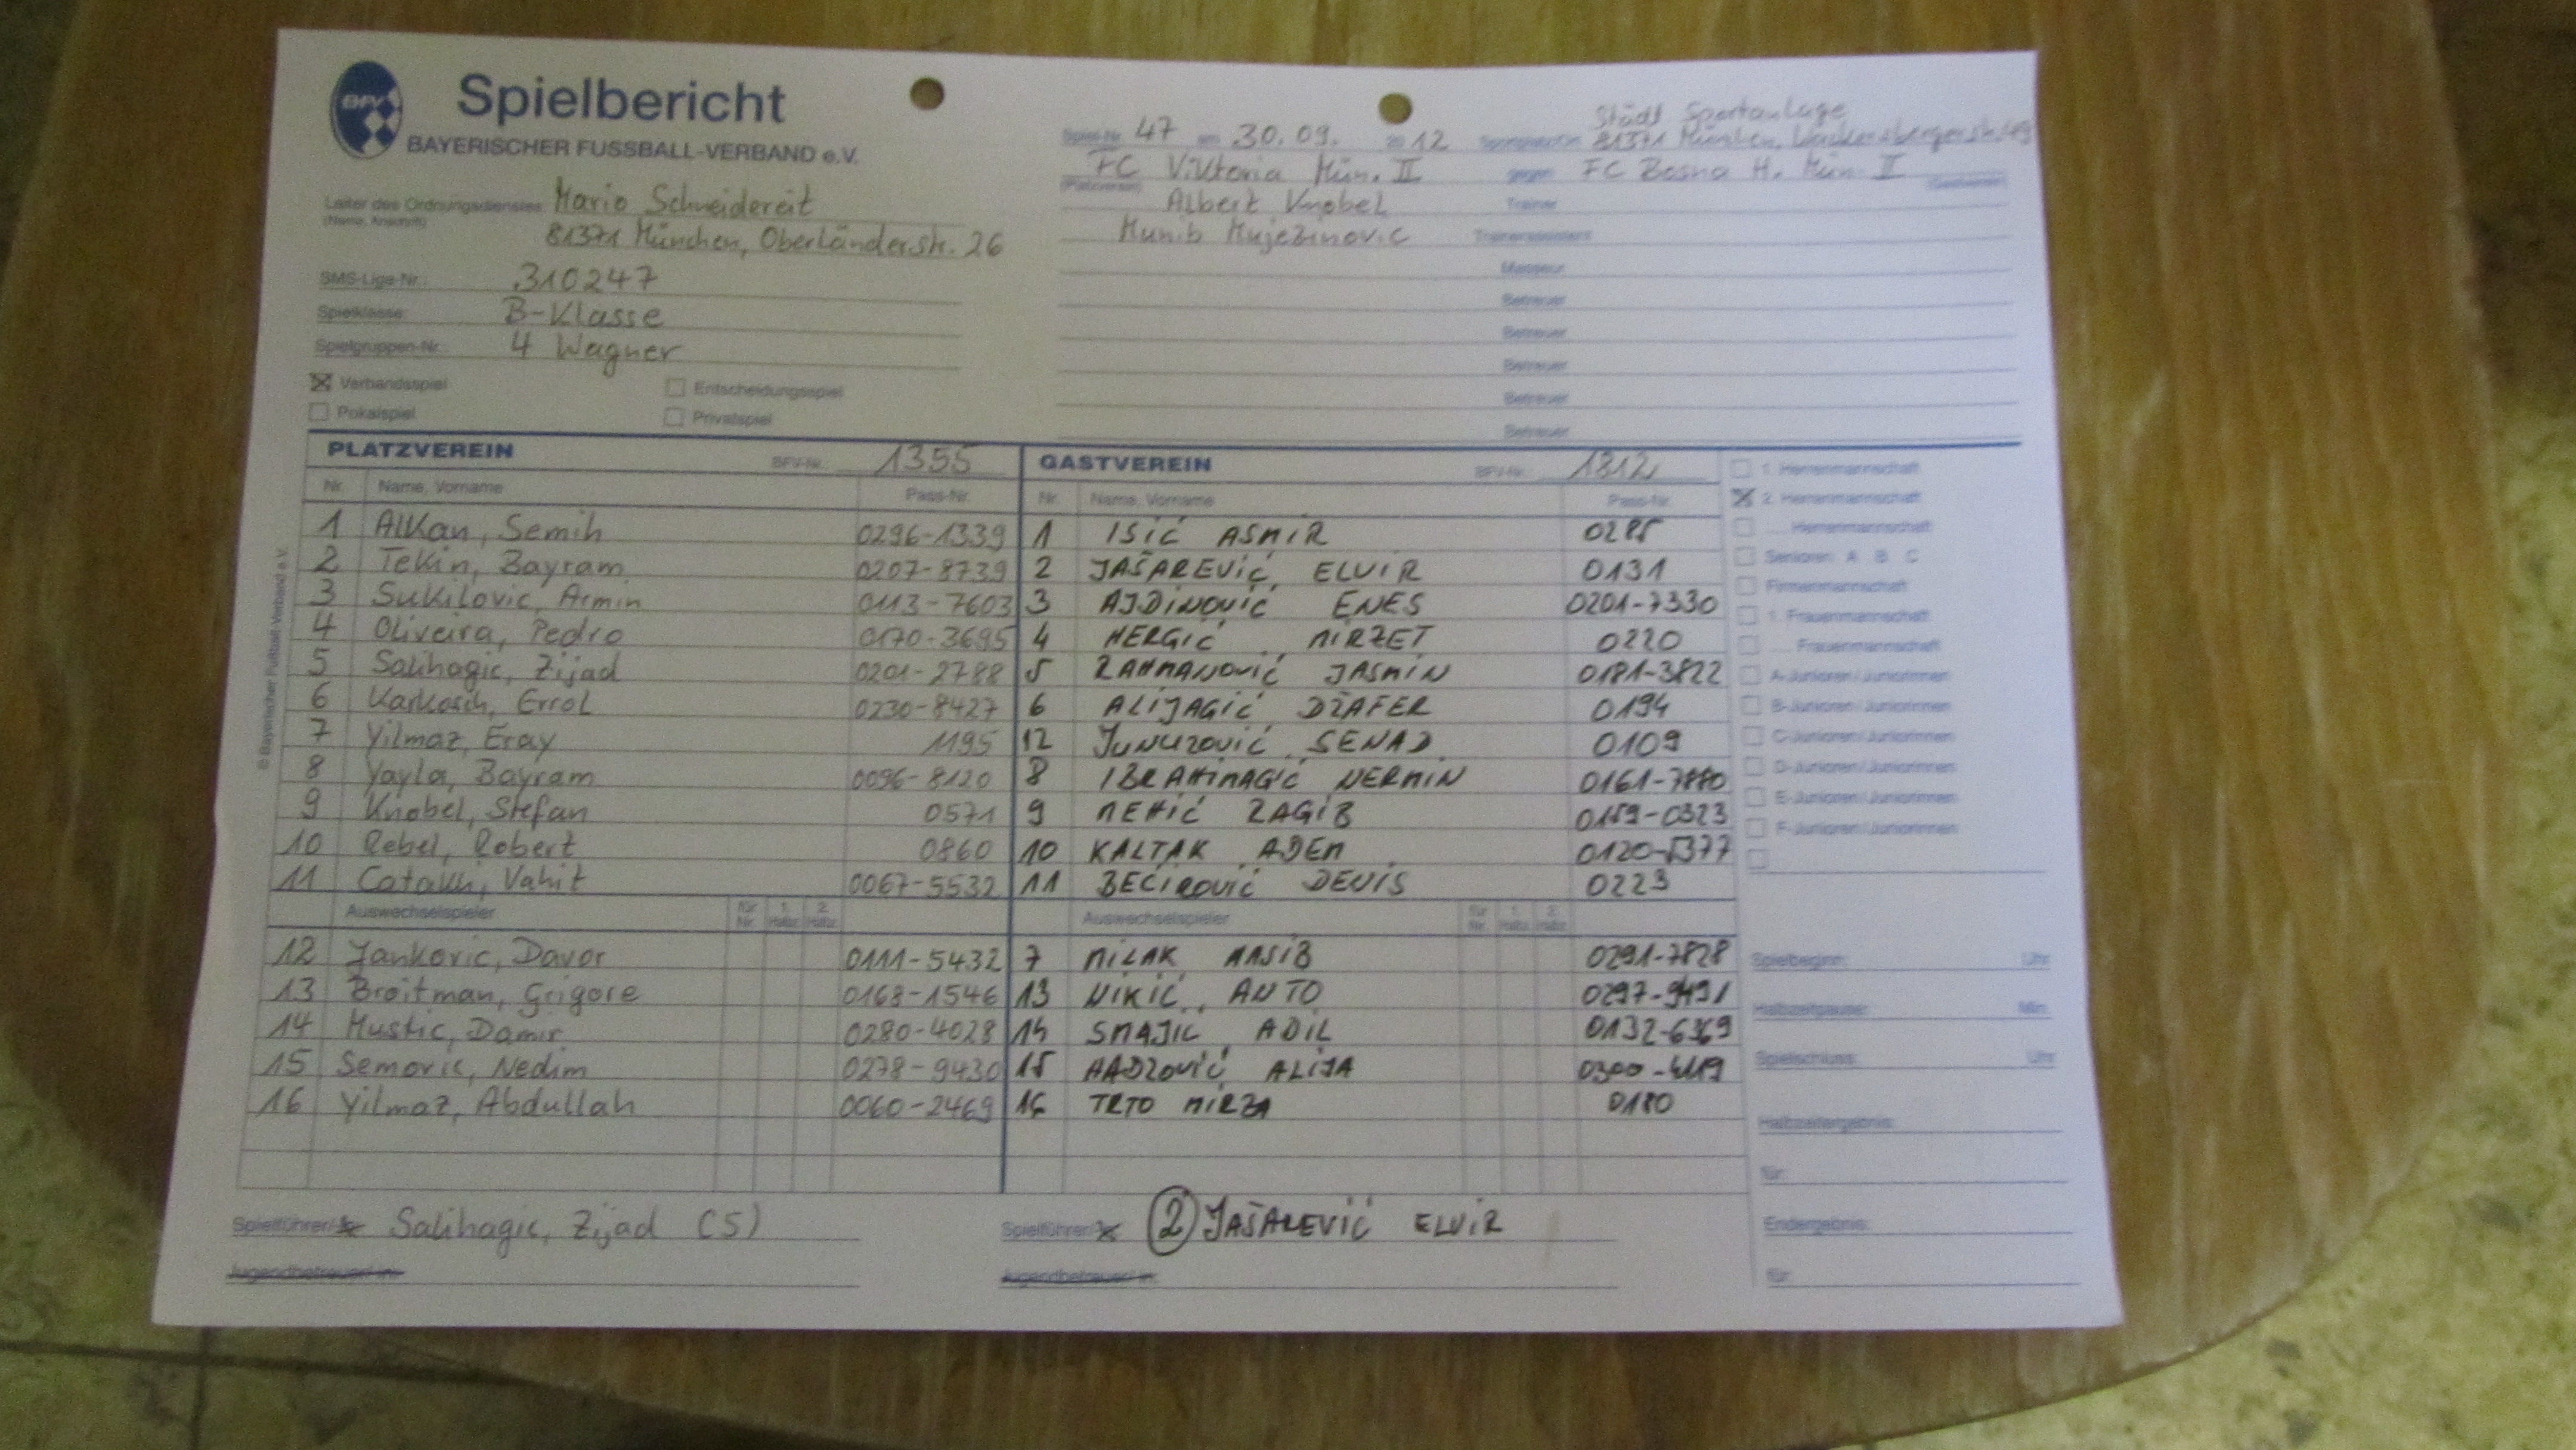 BFV
Spielbericht
BAYERISCHER FUSSBALL-VERBAND e.V.
Leiter des Ordnungsdienstes: Mario Schneidereit
(Name, Anschrift)
81371 München, Oberländerstr. 26
SMS-Liga-Nr.: 310247
Spielklasse: B-Klasse
Spielgruppen-Nr.: 4 Wagner
Verbandsspiel
Entscheidungsspiel
Pokalspiel
Privatspiel
Städt Sportanlage
Spiel-Nr. 47 am 30.09. 2012 81371 München,
FC Viktoria Mün. II gegen FC Bosna H. Mün. II
(Platzverein) (Gastverein)
Albert Knobel Trainer
Munib Mujezinovic Trainerassistent
Masseur
Betreuer
Betreuer
Betreuer
Betreuer
Betreuer
PLATZVEREIN BFV-Nr. 1355
Nr. Name, Vorname Pass-Nr.
1 Alkan, Semih 0296-1339
2 Tekin, Bayram 0207-8739
3 Sukilovic, Armin 0113-7603
4 Oliveira, Pedro 0170-3695
5 Salihagic, Zijad 0201-2788
6 Karkosch, Errol 0230-8427
7 Yilmaz, Eray 1195
8 Yayla, Bayram 0096-8120
9 Knobel, Stefan 0571
10 Rebel, Robert 0860
11 Vahit 0067-5532
Auswechselspieler für Nr. 1. Halbz. 2. Halbz.
12 Jankovic, Davor 0111-5432
13 Broitman, Grigore 0168-1546
14 Mustic, Damir 0280-4028
15 Semovic, Nedim 0278-9430
16 Yilmaz, Abdullah 0060-2469
Spielführer/in Salihagic, Zijad (5)
Jugendbetreuer/in:
GASTVEREIN BFV-Nr. 1312
Nr. Name, Vorname Pass-Nr.
1 ISIĆ ASMIR 0285
2 JAŠAREVIĆ ELVIR 0131
3 AJDINOVIĆ ENES 0201-7330
4 HERGIĆ MIRZET 0220
5 RAHMANOVIĆ JASMIN 0181-3822
6 ALIJAGIĆ DŽAFER 0194
12 JUNUZOVIĆ SENAD 0109
8 IBRAHIMAGIĆ NERMIN 0161-7880
9 MEHIĆ ZAGIB 0159-0323
10 KALTAK ADEM 0120-5377
11 BEĆIROVIĆ DENIS 0223
Auswechselspieler für Nr. 1. Halbz. 2. Halbz.
7 MILAK NASIB 0291-7828
13 NIKIĆ ANTO 0297-9491
14 SMAJIĆ ADIL 0132-6369
15 HADZOVIĆ ALIJA
16 TRTO MIRZA 0180
Spielführer/in 2 JAŠAREVIĆ ELVIR
Jugendbetreuer/in:
1. Herrenmannschaft
2. Herrenmannschaft
.... Herrenmannschaft
Senioren: A B C
Firmenmannschaft
1. Frauenmannschaft
.... Frauenmannschaft
A-Junioren/Juniorinnen
B-Junioren/Juniorinnen
C-Junioren/Juniorinnen
D-Junioren/Juniorinnen
E-Junioren/Juniorinnen
F-Junioren/Juniorinnen
Spielbeginn: Uhr
Halbzeitpause: Min.
Spielschluss: Uhr
Halbzeitergebnis:
für:
Endergebnis:
für:
© Bayerischer Fußball-Verband e.V.